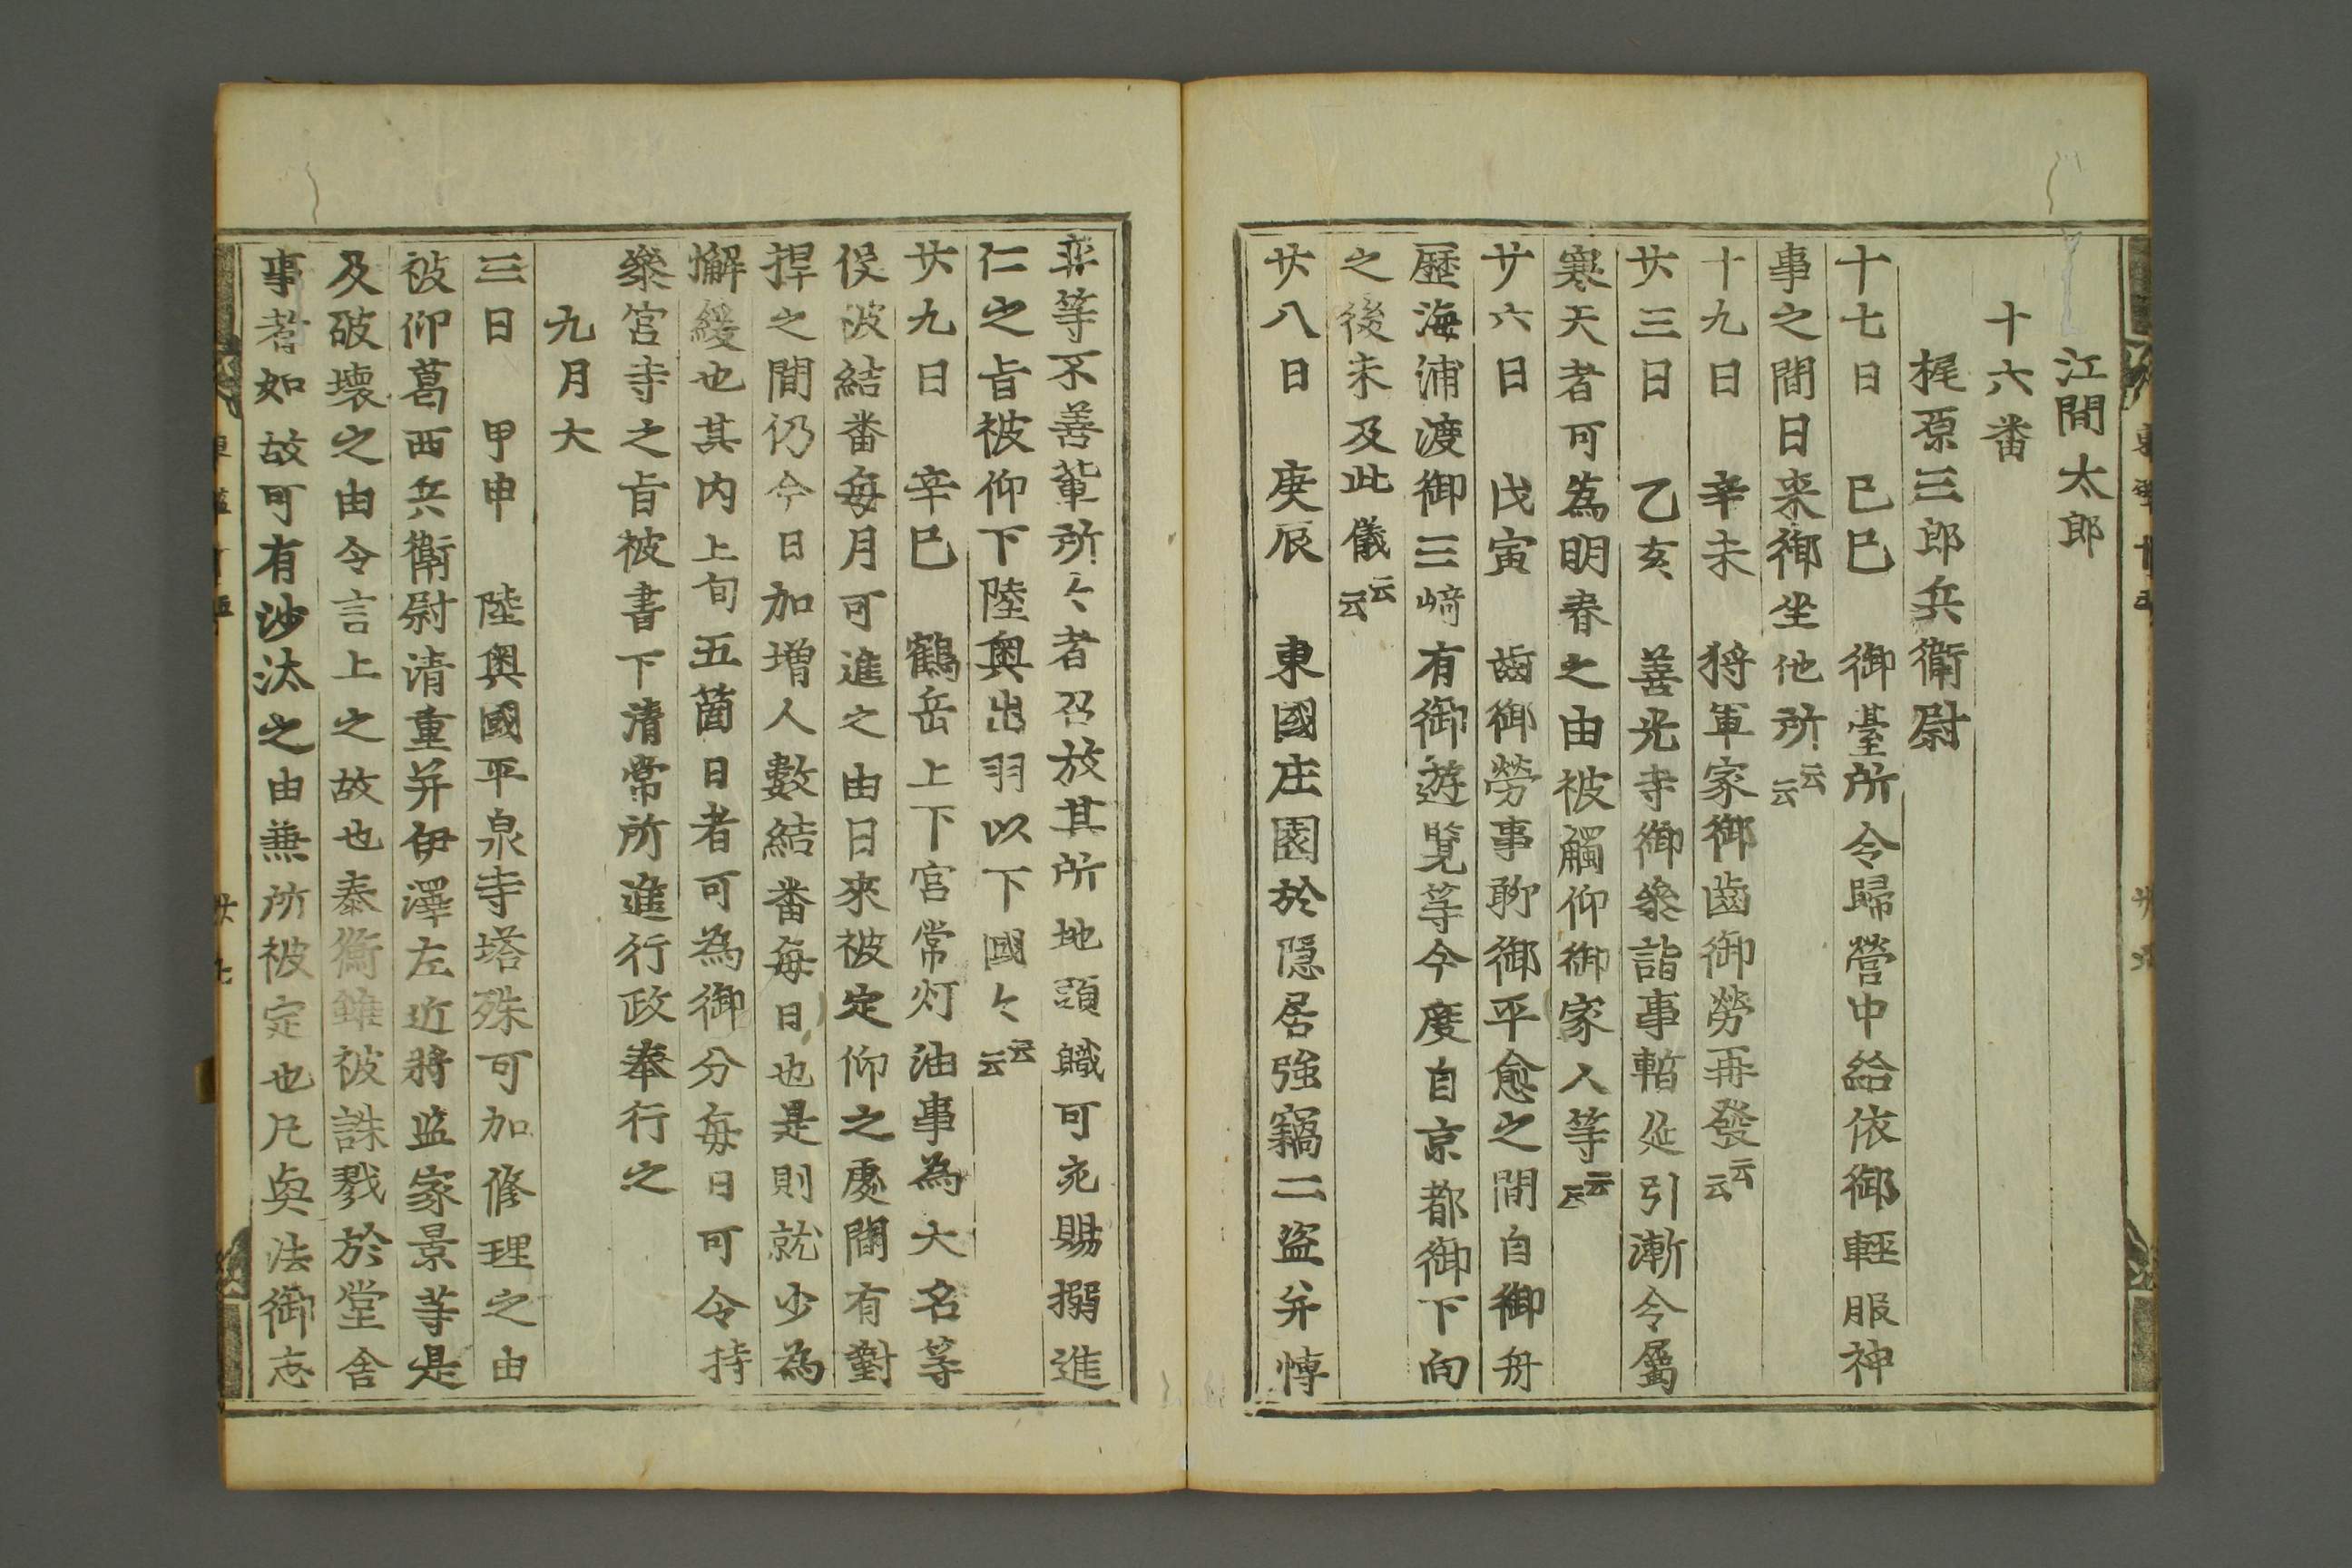 江間太郎
十六番
梶原三郎兵衛尉
十七日 己巳 御臺所令歸營中給依御輕服神
事之間日来御坐他所云云
十九日 辛未 将軍家御齒御勞再發云云
廿三日 乙亥 善光寺御叅詣事暫延引漸令屬
寒天者可為明春之由被觸仰御家人等云云
廿六日 戊寅 齒御勞事聊御平愈之間自御舟
歷海浦渡御三﨑有御遊覽等今度自京都御下向
之後未及此儀云云
廿八日 庚辰 東國庄園於隠居強竊二盗并博
弈等不善輩所々者召放其所地頭職可充賜搦進
仁之旨被仰下陸奥出羽以下國々云云
廿九日 辛巳 鶴岳上下宮常灯油事為大名等
役彼結番每月可進之由日來被定仰之處間有對
捍之間仍今日加増人數結番每日也是則就少為
懈緩也其内上旬五箇日者可為御分每日可令持
叅宮寺之旨被書下清常所進行政奉行之
九月大
三日 甲申 陸奥國平泉寺塔殊可加修理之由
被仰葛西兵衛尉清重并伊澤左近将监家景等是
及破壊之由令言上之故也泰衡雖被誅戮於堂舍
事者如故可有沙汰之由兼所被定也凡奥法御志